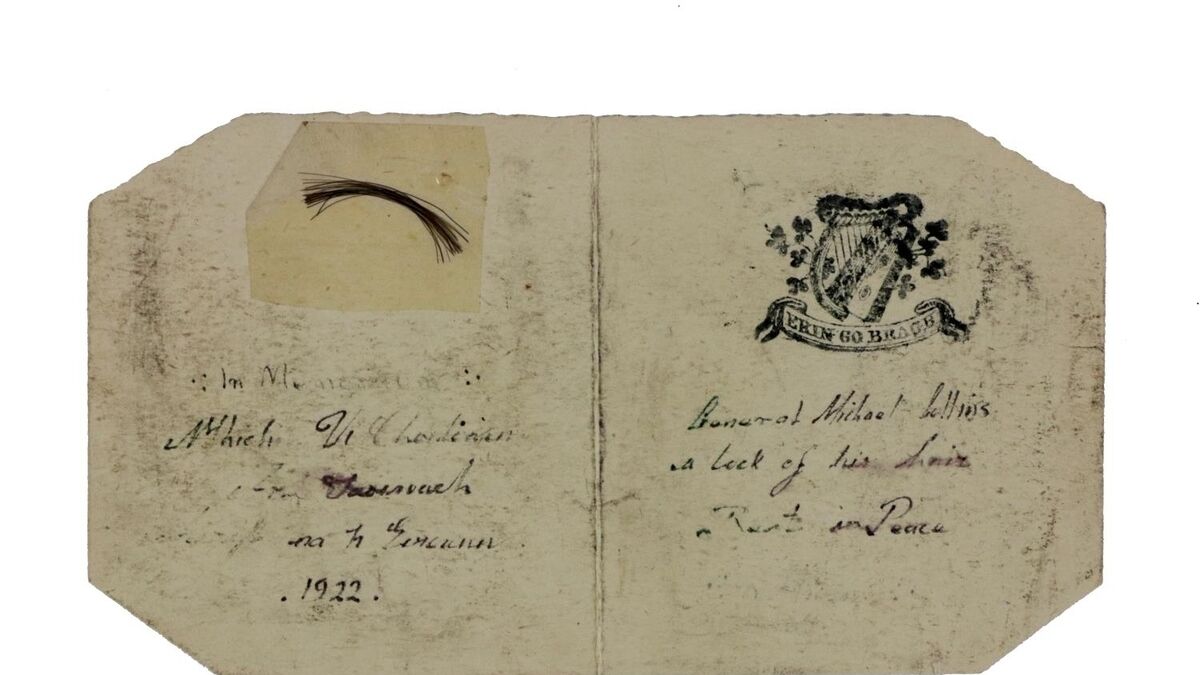 In Memoriam
Mhichíl Uí Choileáin
na h Éireann
.1922.
ERIN GO BRAGH
General Michael Collins
a lock of his hair
Rest in Peace